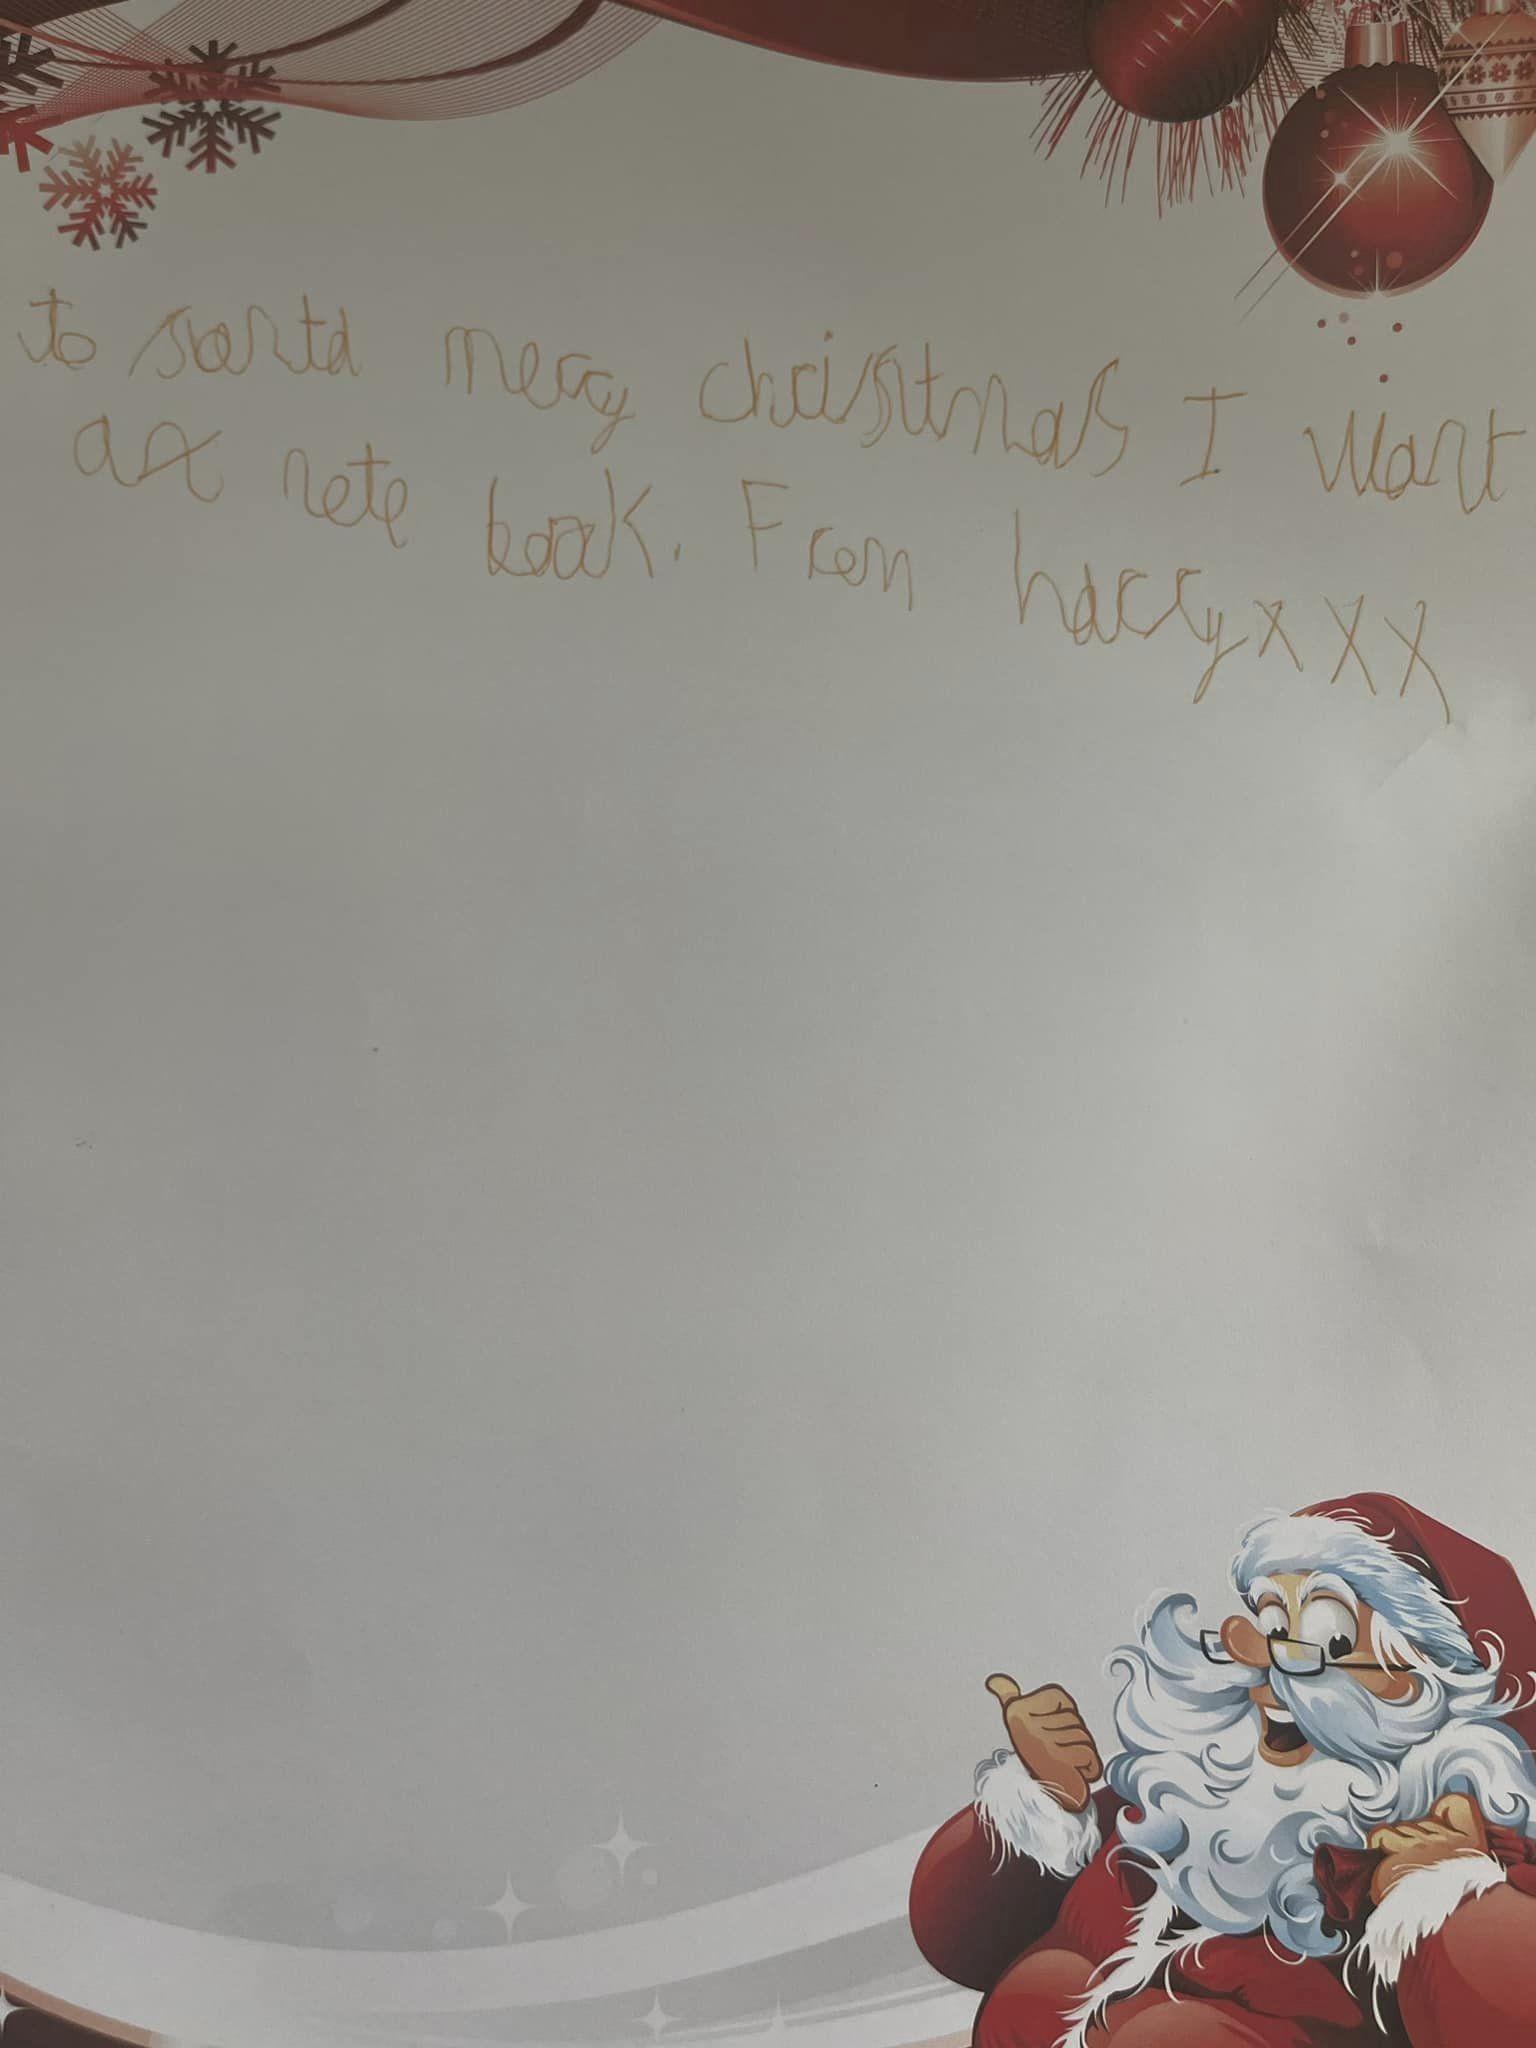 to santa merry christmas I want
a x note book. From harry x x x